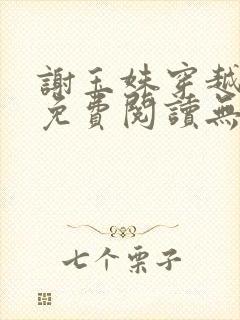 謝玉姝穿越
免費閱讀無
七个栗子